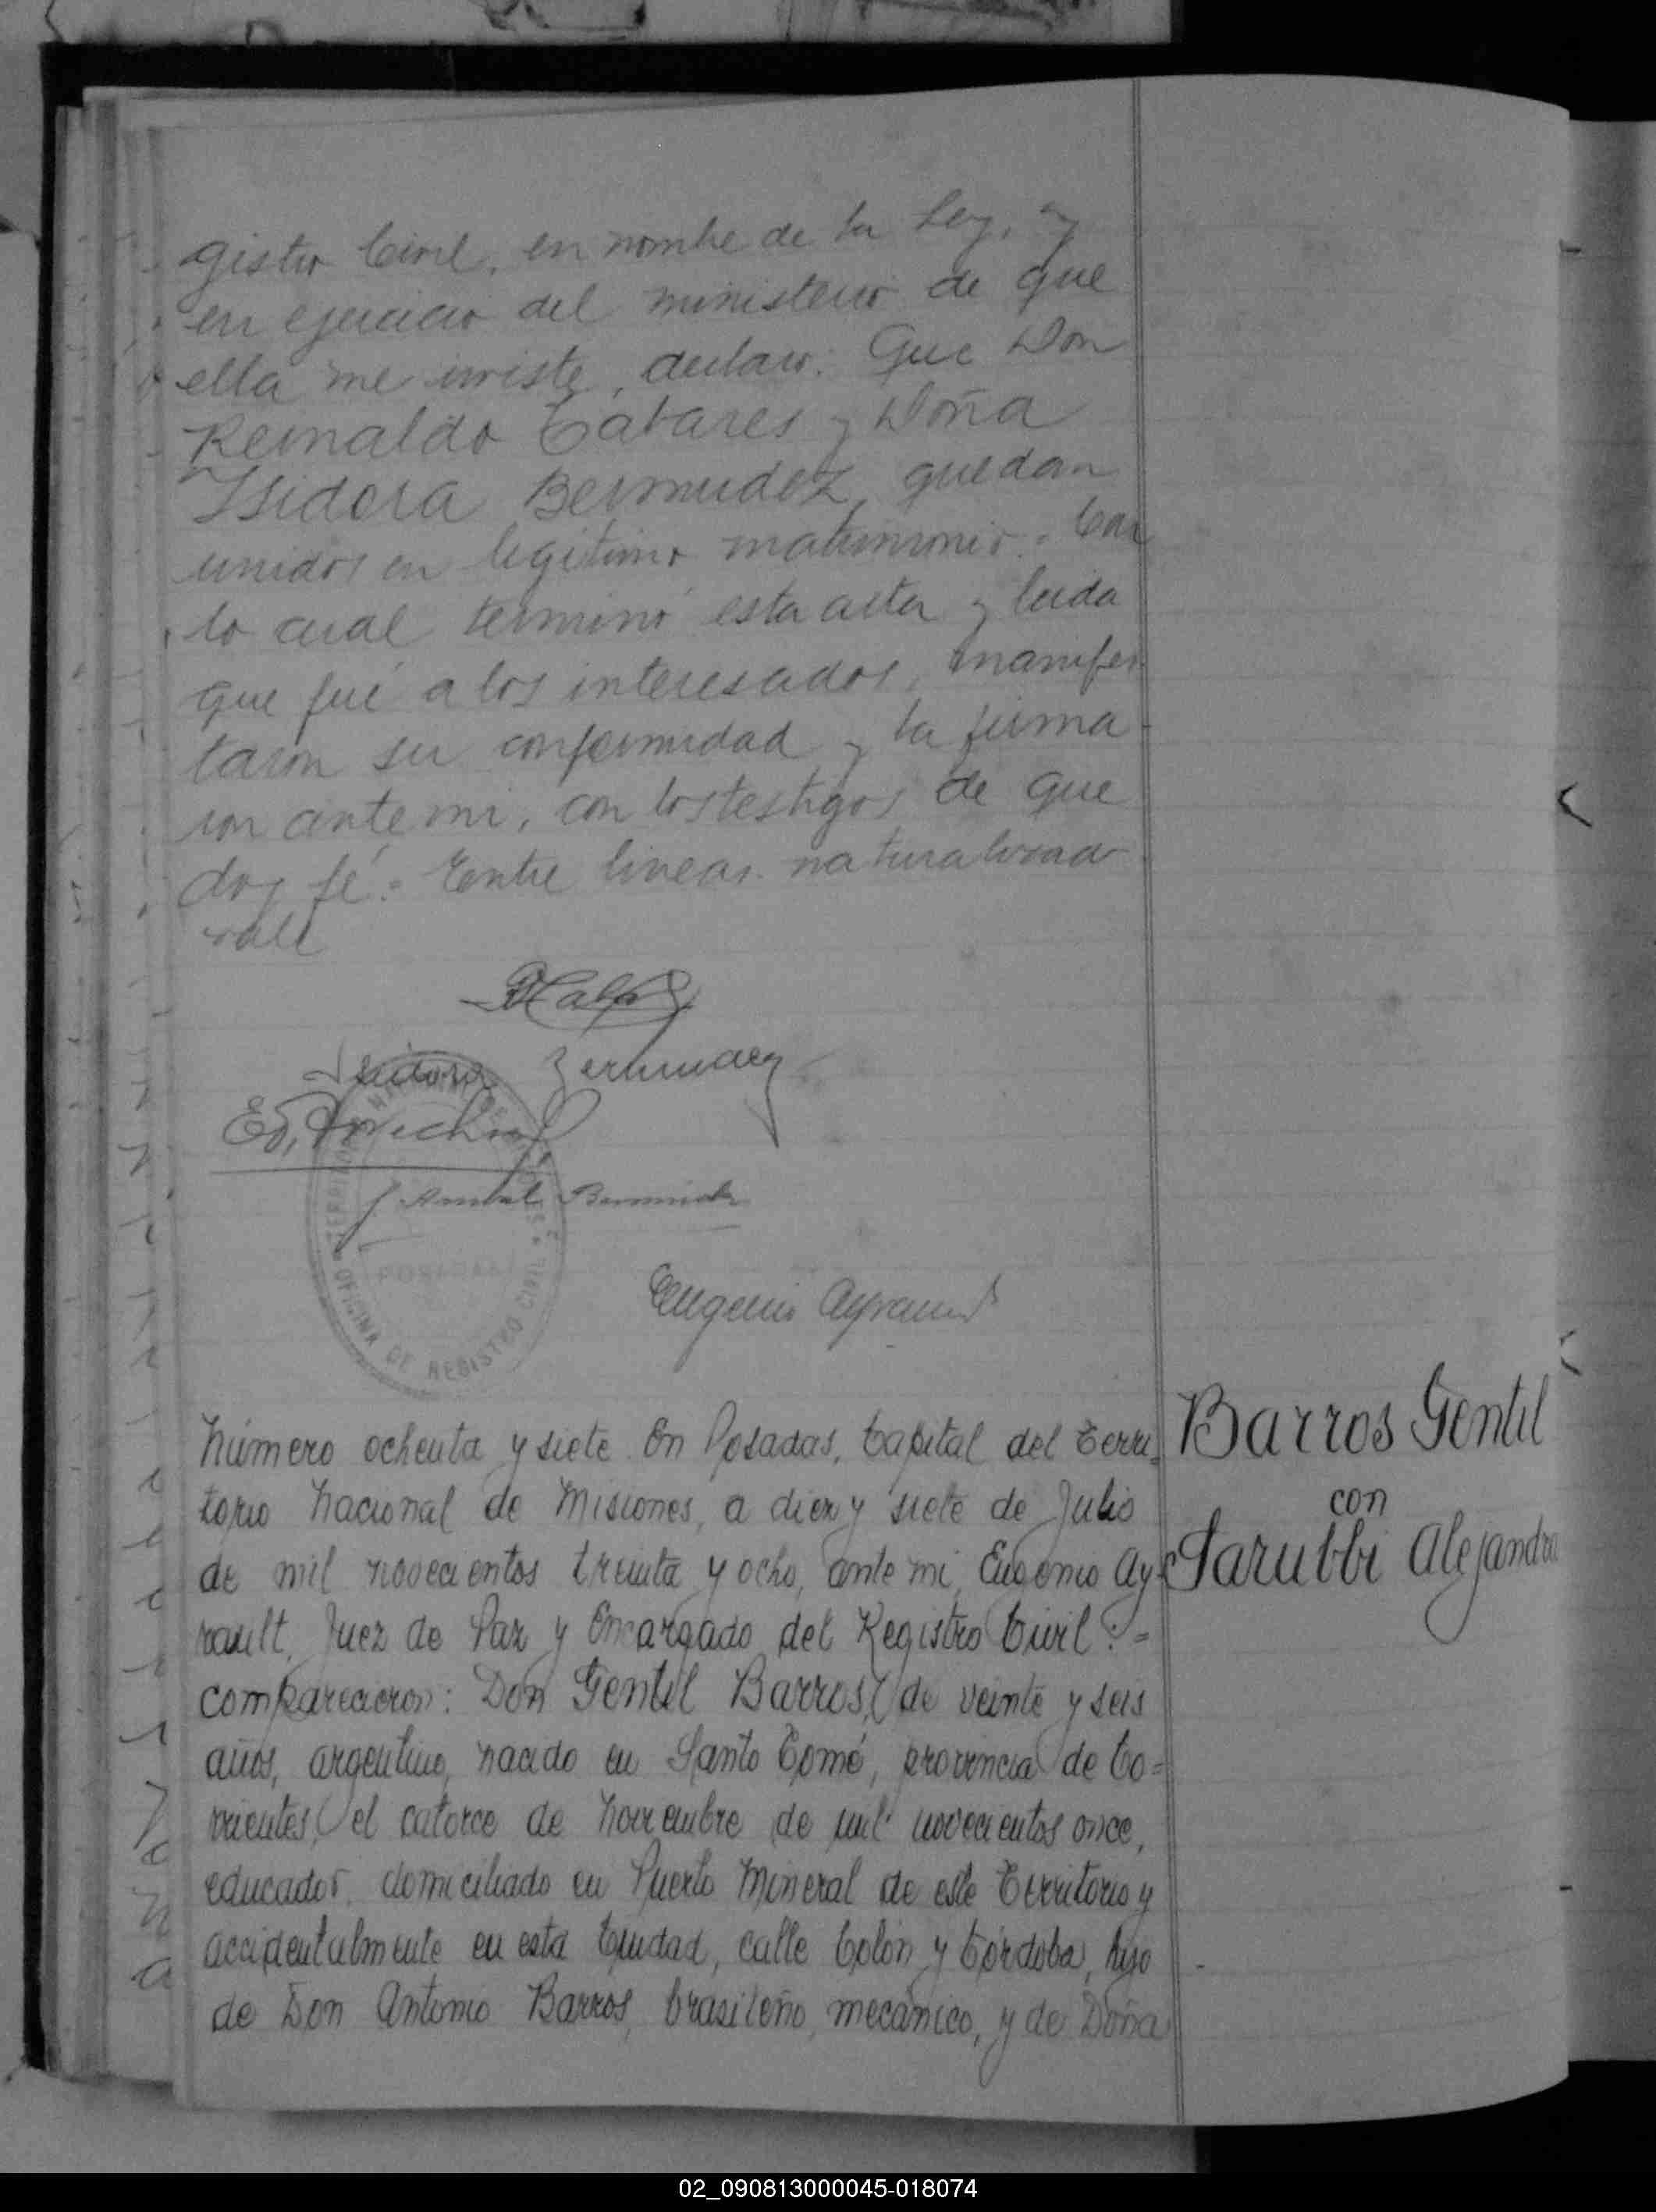 gistro Civil, en nombre de la Ley, y
en ejercicio del ministerio de que
ella me inviste, declaro: Que Don
Reinaldo Cabares y Doña
Isidora Bermudez, quedan
unidos en legitimo matrimonio.- Con
lo cual terminó esta acta y leida
que fué a los interesados, manifes
taron su conformidad y la firma-
ron ante mi, con los testigos de que
doy fé.- Entre lineas. naturalizado
vale
Isidora Bermudez
Eugenio Ayrault
TERRITORIO NACIONAL DE MISIONES
POSADAS
OFICINA DE REGISTRO CIVIL
Número ochenta y siete. En Posadas, Capital del Terri=
torio Nacional de Misiones, a diez y siete de Julio
de mil novecientos treinta y ocho, ante mi, Eugenio Ay=
rault, Juez de Paz y Encargado del Registro Civil:=
comparecieron: Don Gentil Barros, de veinte y seis
años, argentino, nacido en Santo Tomé, provincia de Co=
rrientes, el catorce de Noviembre de mil novecientos once,
educador, domiciliado en Puerto Mineral de este Territorio y
accidentalmente en esta Ciudad, calle Colón y Córdoba, hijo
de Don Antonio Barros, brasileño, mecánico, y de Doña
Barros Gentil
con
Sarubbi Alejandra
02_090813000045-018074